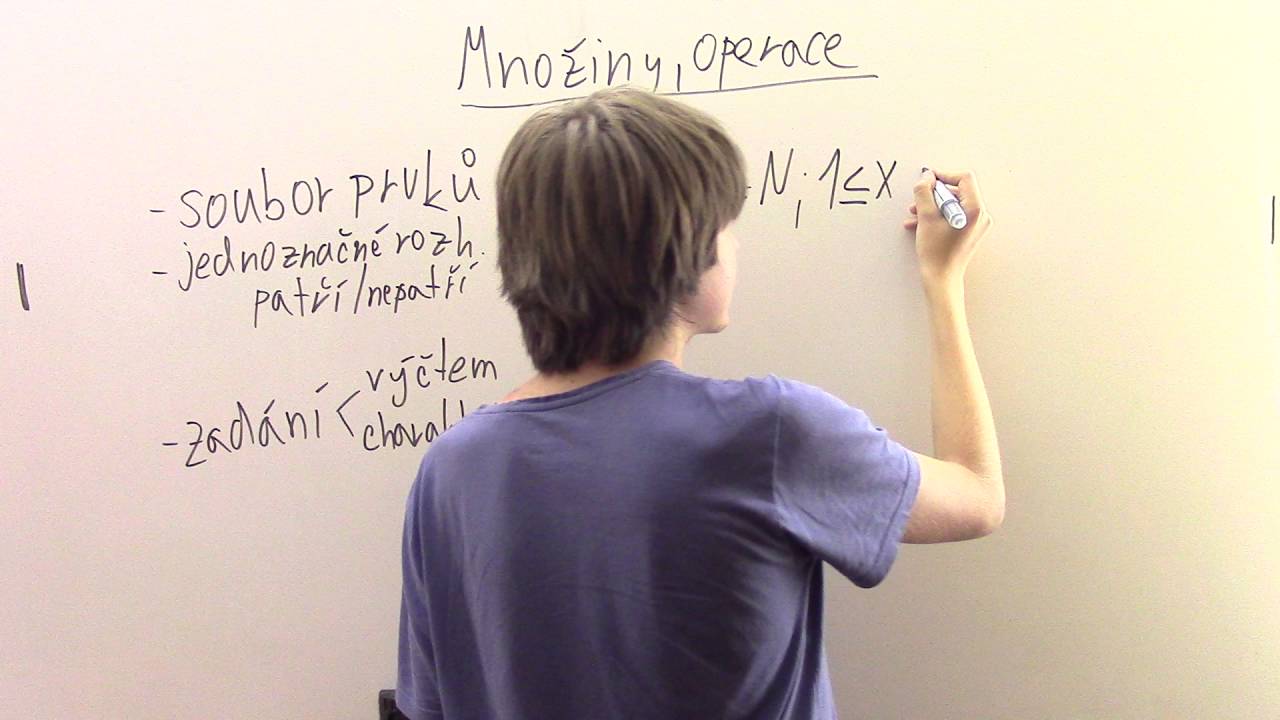 Množiny, operace
- soubor prvků
- jednoznačné rozh.
patří/nepatří
- zadání < výčtem
N; 1≤x